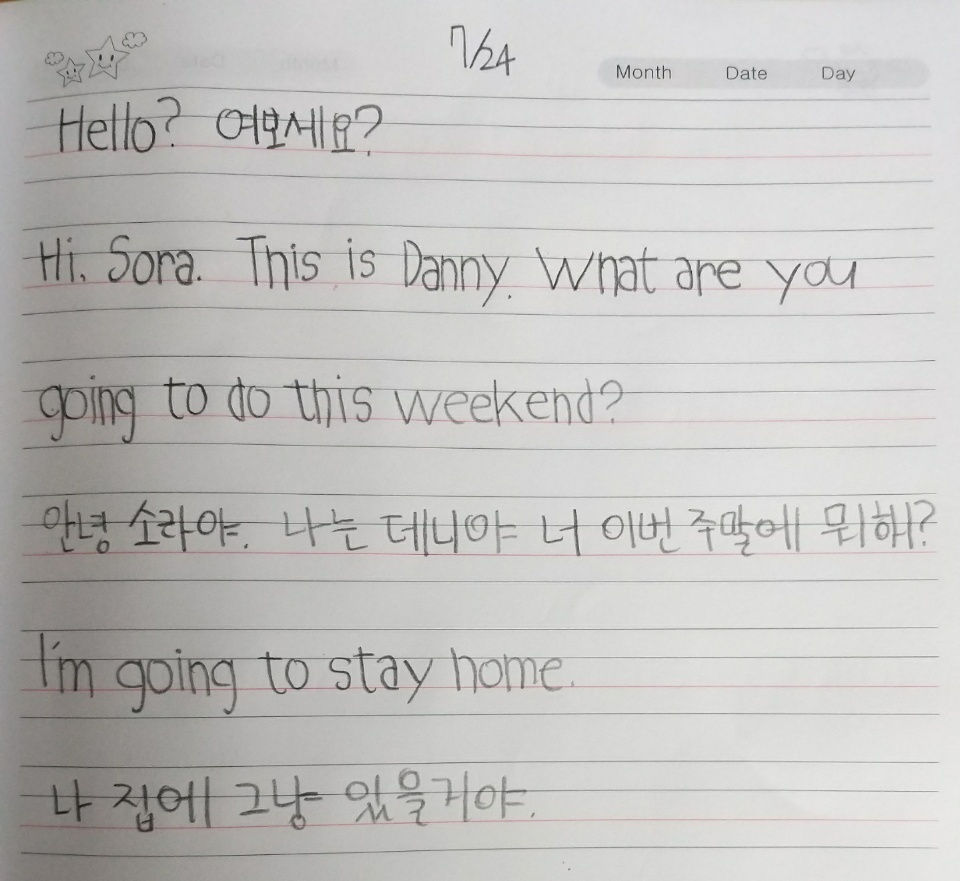 7/24
Month Date Day
Hello? 여보세요?
Hi. Sora. This is Danny. What are you
going to do this weekend?
안녕 소라야. 나는 데니야 너 이번 주말에 뮈해?
I'm going to stay home.
나 집에 그냥 있을거야.